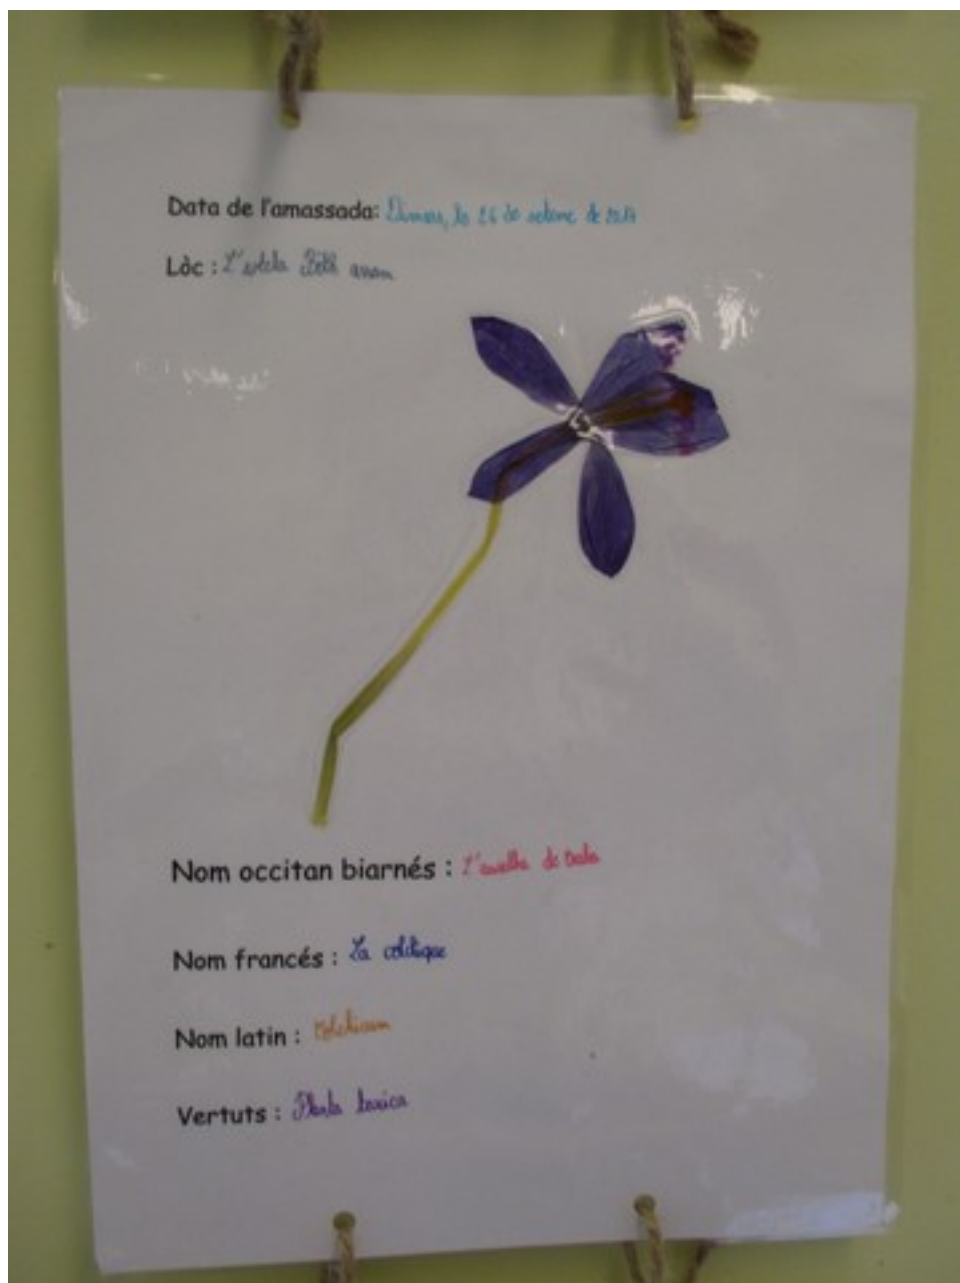 Data de l'amassada: Dimars, lo 26 de seteme de 2017
Lòc : L'estela Bèth
Nom occitan biarnés : L'auelha de
Nom francés : La colchique
Nom latin : Colchicum
Vertuts : Planta toxica